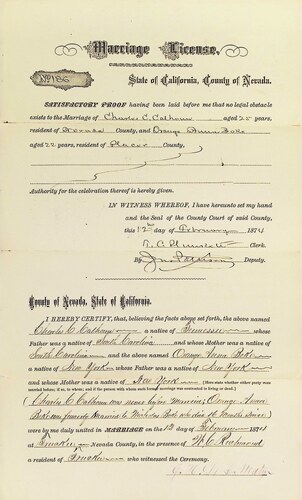 Marriage License,
No 186
State of California, County of Nevada.
SATISFACTORY PROOF having been laid before me that no legal obstacle
exists to the Marriage of Charles C. Calhoun aged 25 years,
resident of Nevada County, and Orange Anna
aged 22 years, resident of Placer County,
Authority for the celebration thereof is hereby given.
IN WITNESS WHEREOF, I have hereunto set my hand
and the Seal of the County Court of said County,
this 12th day of February 1874
Clerk.
By Deputy.
County of Nevada, State of California.
I HEREBY CERTIFY, that, believing the facts above set forth, the above named
Charles C. Calhoun a native of Tennessee whose
Father was a native of South Carolina and whose Mother was a native of
South Carolina and the above named Orange Anna
a native of New York whose Father was a native of New York
and whose Mother was a native of New York (Here state whether either party were
married before, if so, to whom; and if the person with whom such former marriage was contracted is living or dead.)
(Charles C. Calhoun was never before married; Orange Anna
formerly married to Nicholas who died
were by me duly united in MARRIAGE on the day of February 1874
at Truckee Nevada County, in the presence of W. C.
a resident of Truckee who witnessed the Ceremony.